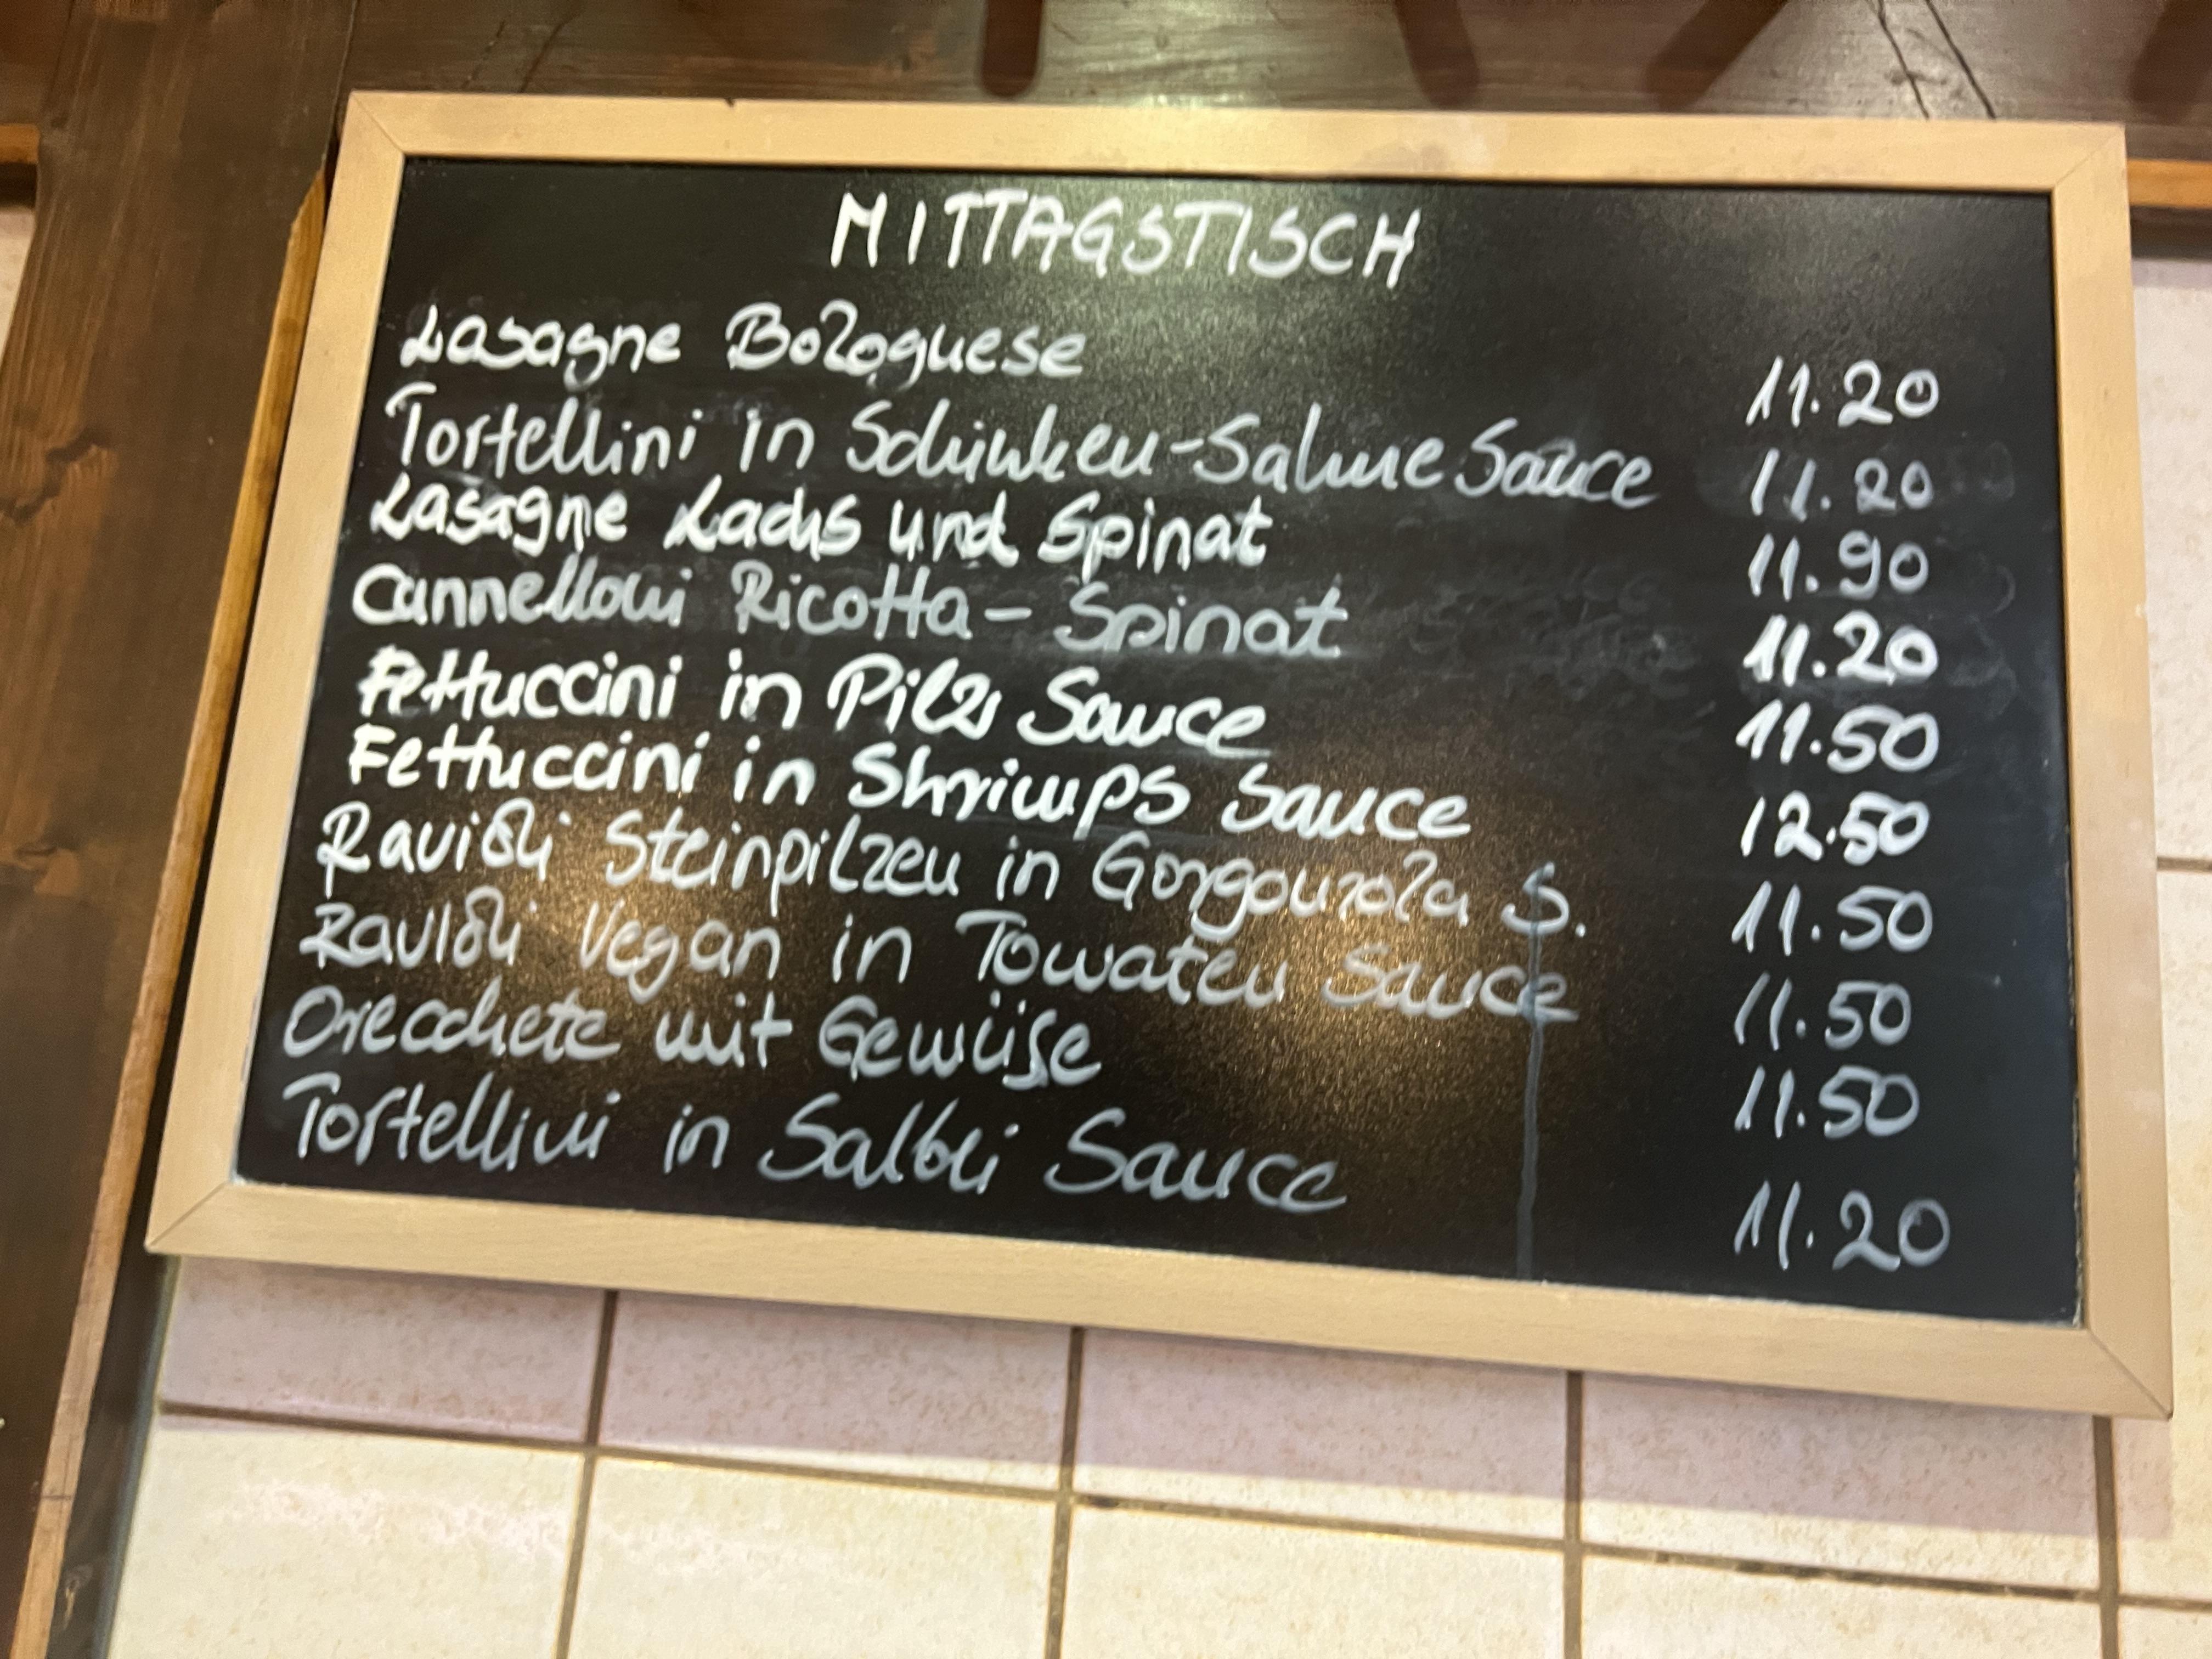 MITTAGSTISCH
Lasagne Bolognese 11.20
Tortellini in Schinken-Sahne Sauce 11.20
Lasagne Lachs und Spinat 11.90
Cannelloni Ricotta - Spinat 11.20
Fettuccini in Pilz Sauce 11.50
Fettuccini in Shrimps Sauce 12.50
Ravioli Steinpilzen in Gorgonzola S. 11.50
Ravioli Vegan in Tomaten Sauce 11.50
Orecchete mit Gewüse 11.50
Tortellini in Salbei Sauce 11.20